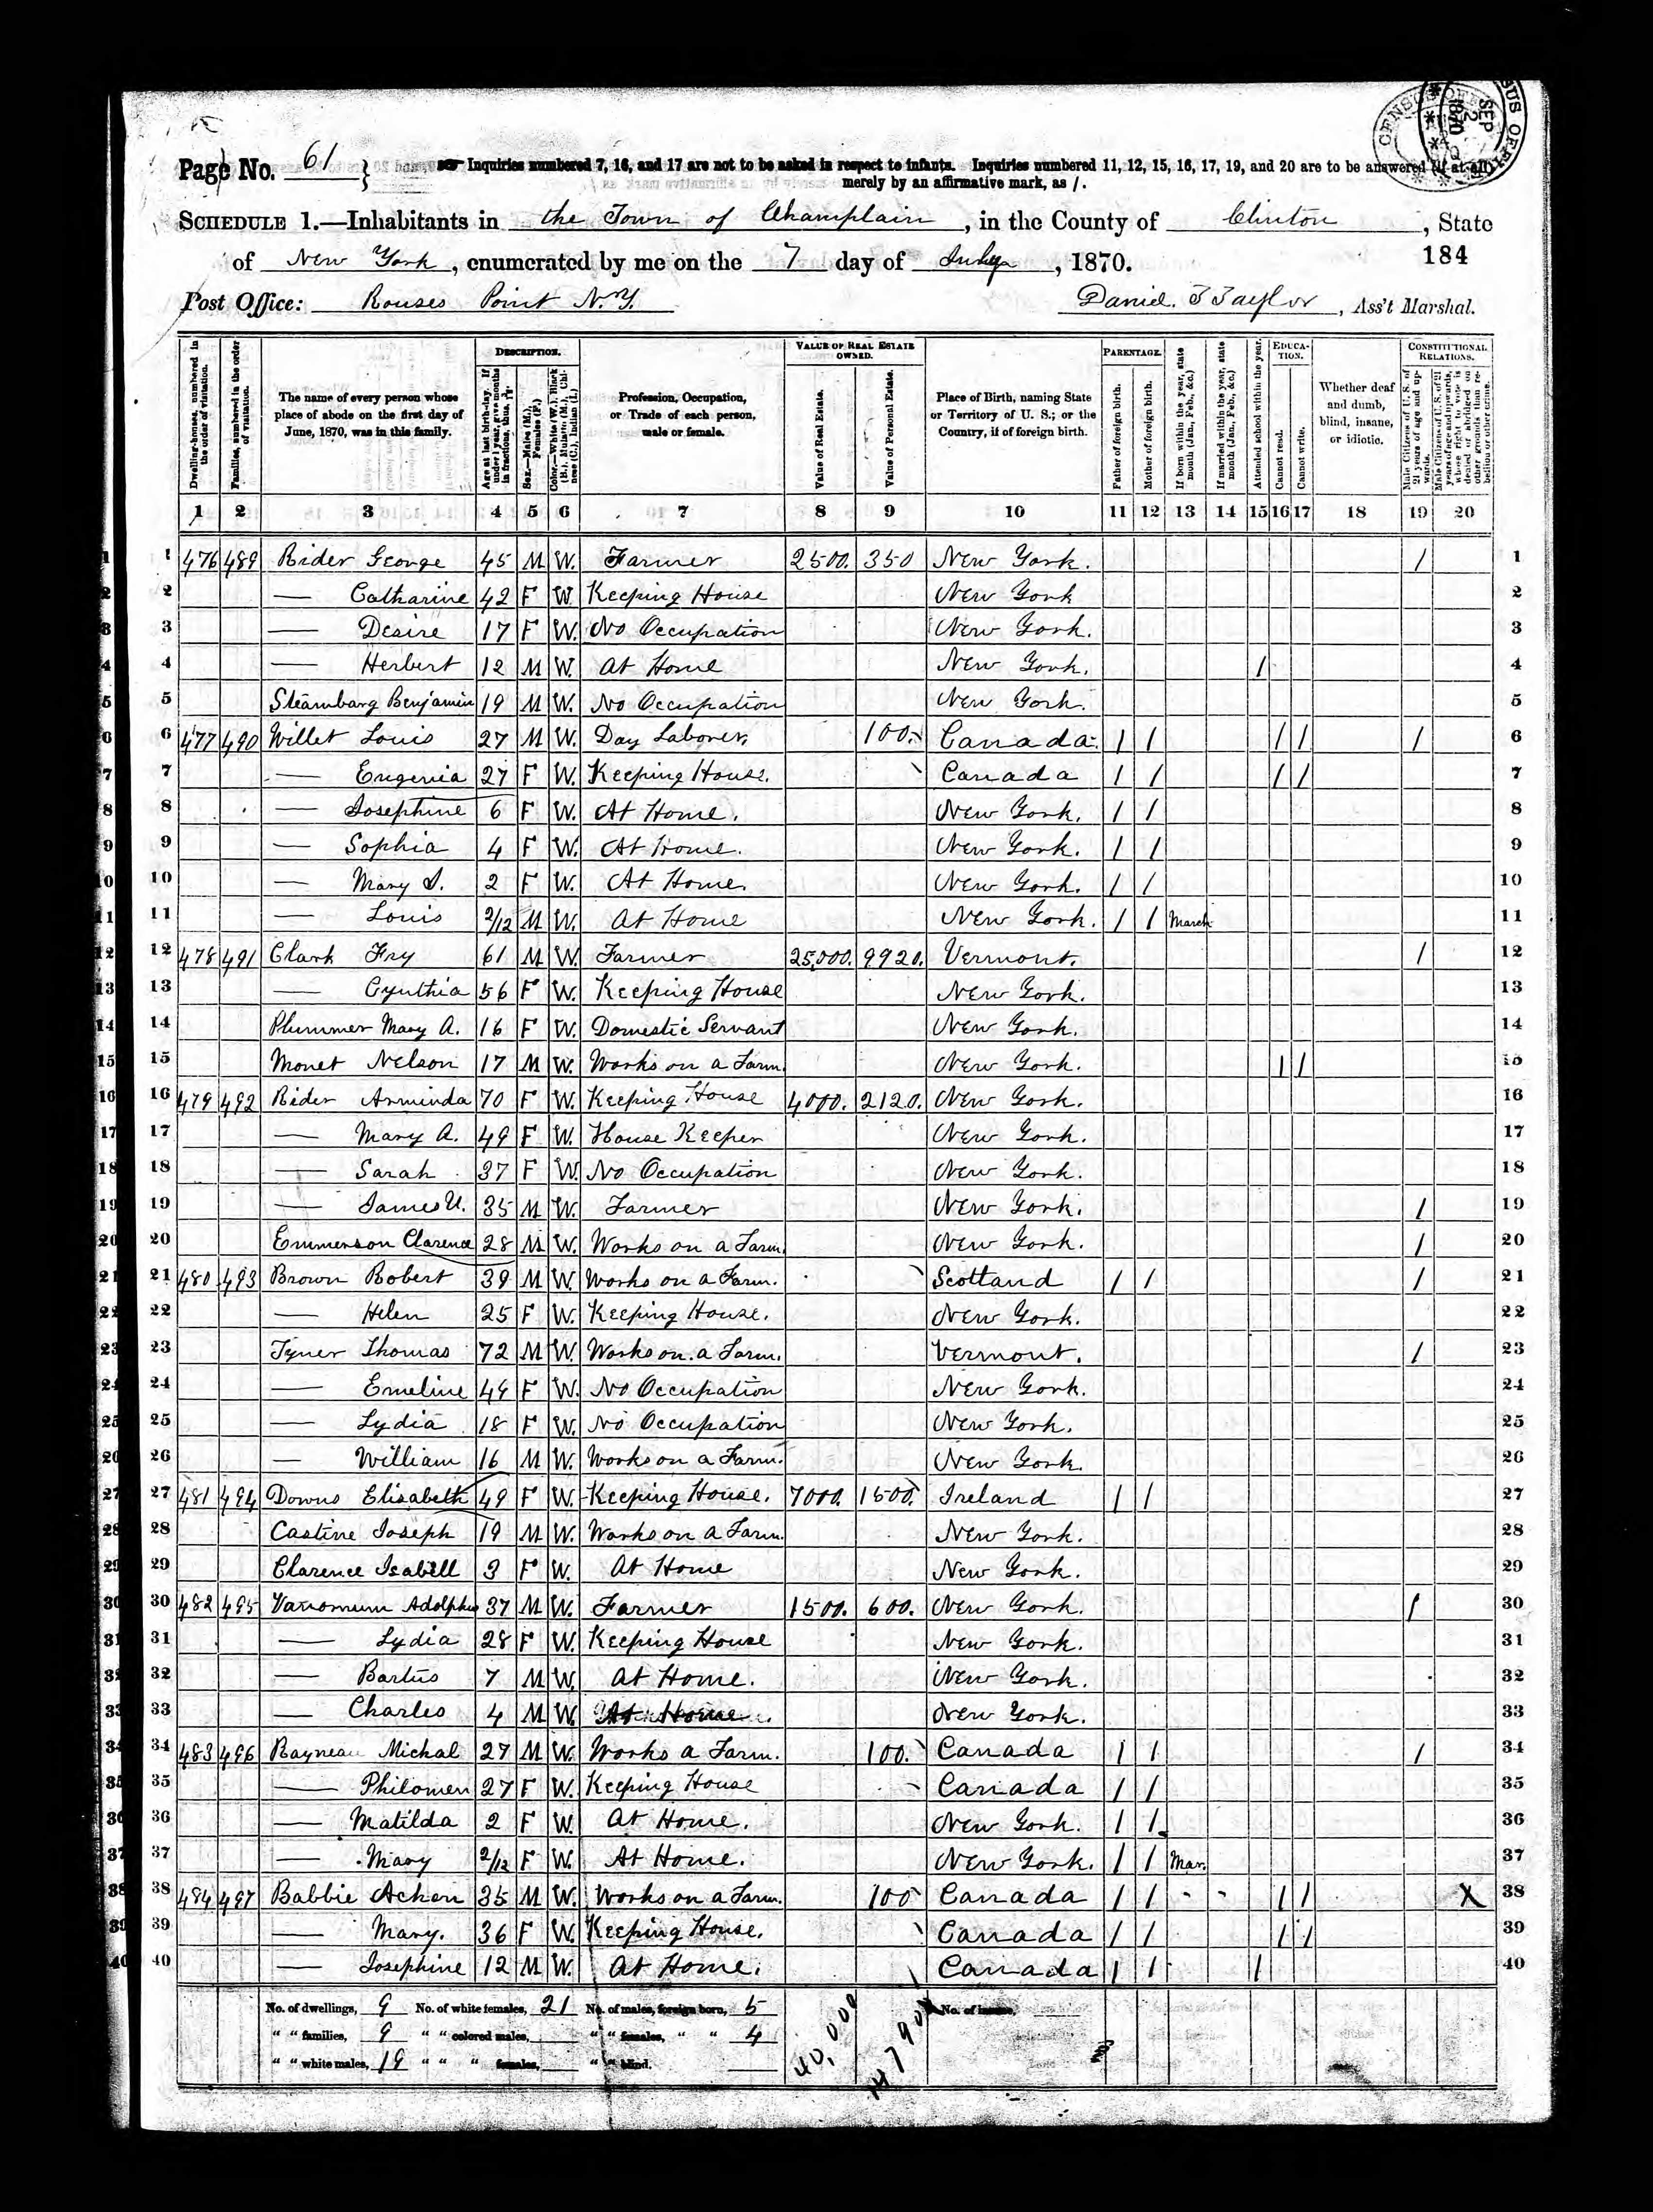 Page No. 61 } Inquiries numbered 7, 16, and 17 are not to be asked in respect to infants. Inquiries numbered 11, 12, 15, 16, 17, 19, and 20 are to be answered (if at all)
merely by an affirmative mark, as /.
CENSUS OFFICE SEP 2 1870
SCHEDULE 1.—Inhabitants in the Town of Champlain, in the County of Clinton, State
of New York, enumerated by me on the 7 day of July, 1870. 184
Post Office: Rouses Point N.Y. Daniel T Taylor, Ass't Marshal.
Dwelling-houses, numbered in the order of visitation.
Families, numbered in the order of visitation.
The name of every person whose place of abode on the first day of June, 1870, was in this family.
DESCRIPTION.
Age at last birth-day. If under 1 year, give months in fractions, thus, 3/12.
Sex.—Males (M.), Females (F.)
Color.—White (W.), Black (B.), Mulatto (M.), Chinese (C.), Indian (I.)
Profession, Occupation, or Trade of each person, male or female.
VALUE OF REAL ESTATE OWNED.
Value of Real Estate.
Value of Personal Estate.
Place of Birth, naming State or Territory of U. S.; or the Country, if of foreign birth.
PARENTAGE.
Father of foreign birth.
Mother of foreign birth.
If born within the year, state month (Jan., Feb., &c.)
If married within the year, state month (Jan., Feb., &c.)
Attended school within the year.
EDUCATION.
Cannot read.
Cannot write.
Whether deaf and dumb, blind, insane, or idiotic.
CONSTITUTIONAL RELATIONS.
Male Citizens of U. S. of 21 years of age and upwards.
Male Citizens of U. S. of 21 years of age and upwards, whose right to vote is denied or abridged on other grounds than rebellion or other crime.
1 2 3 4 5 6 7 8 9 10 11 12 13 14 15 16 17 18 19 20
1 1 476 489 Rider George 45 M W. Farmer 2500. 350 New York. / 1
2 2 — Catharine 42 F W Keeping House New York 2
3 3 — Desire 17 F W. No Occupation New York. 3
4 4 — Herbert 12 M W. At Home New York. / 4
5 5 Benjamin 19 M W. No Occupation New York. 5
6 6 477 490 Willet Louis 27 M W. Day Laborer. 100. Canada. / / / / / 6
7 7 — Eugenia 27 F W. Keeping House. Canada / / / / 7
8 8 — Josephine 6 F W. At Home. New York. / / 8
9 9 — Sophia 4 F W. At Home. New York. / / 9
10 10 — Mary 2 F W. At Home. New York. / / 10
11 11 — Louis 2/12 M W. At Home New York. / / March 11
12 12 478 491 Clark Fry 61 M W. Farmer 25,000. 9920. Vermont. / 12
13 13 — Cynthia 56 F W. Keeping House New York. 13
14 14 Plummer Mary A. 16 F W. Domestic Servant New York. 14
15 15 Monet Nelson 17 M W. Works on a Farm. New York. / / 15
16 16 479 492 Rider Arminda 70 F W. Keeping House 4000. 2120. New York. 16
17 17 — Mary A. 49 F W. House Keeper New York. 17
18 18 — Sarah 37 F W. No Occupation New York. 18
19 19 — James U. 35 M W. Farmer New York. / 19
20 20 Emmerson Clarence 28 M W. Works on a Farm. New York. / 20
21 21 480 493 Brown Robert 39 M W. Works on a Farm. Scotland / / / 21
22 22 — Helen 25 F W. Keeping House. New York. 22
23 23 Tyner Thomas 72 M W. Works on a Farm. Vermont. / 23
24 24 — Emeline 49 F W. No Occupation New York. 24
25 25 — Lydia 18 F W. No Occupation New York. 25
26 26 — William 16 M W. Works on a Farm. New York. 26
27 27 481 494 Downs Elisabeth 49 F W. Keeping House. 7000. 1500. Ireland / / 27
28 28 Castine Joseph 19 M W. Works on a Farm. New York. 28
29 29 Clarence Isabell 3 F W. At Home New York. 29
30 30 482 495 Adolphus 37 M W. Farmer 1500. 600. New York. / 30
31 31 — Lydia 28 F W. Keeping House New York. 31
32 32 — Bartus 7 M W. At Home. New York. 32
33 33 — Charles 4 M W. At Home. New York. 33
34 34 483 496 Rayneau Michal 27 M W. Works a Farm. 100. Canada / / / 34
35 35 — Philomen 27 F W. Keeping House Canada / / 35
36 36 — Matilda 2 F W. At Home. New York. / / 36
37 37 — Mary 2/12 F W. At Home. New York. / / Mar. 37
38 38 484 497 Babbie Acken 35 M W. Works on a Farm. 100 Canada / / - - / / X 38
39 39 — Mary. 36 F W. Keeping House. Canada / / / / 39
40 40 — Josephine 12 M W. At Home. Canada / / / 40
No. of dwellings, 9 No. of white females, 21 No. of males, foreign born, 5 No. of insane,
" " families, 9 " " colored males, " " females, " " 4
" " white males, 19 " " " females, " " blind.
40,000